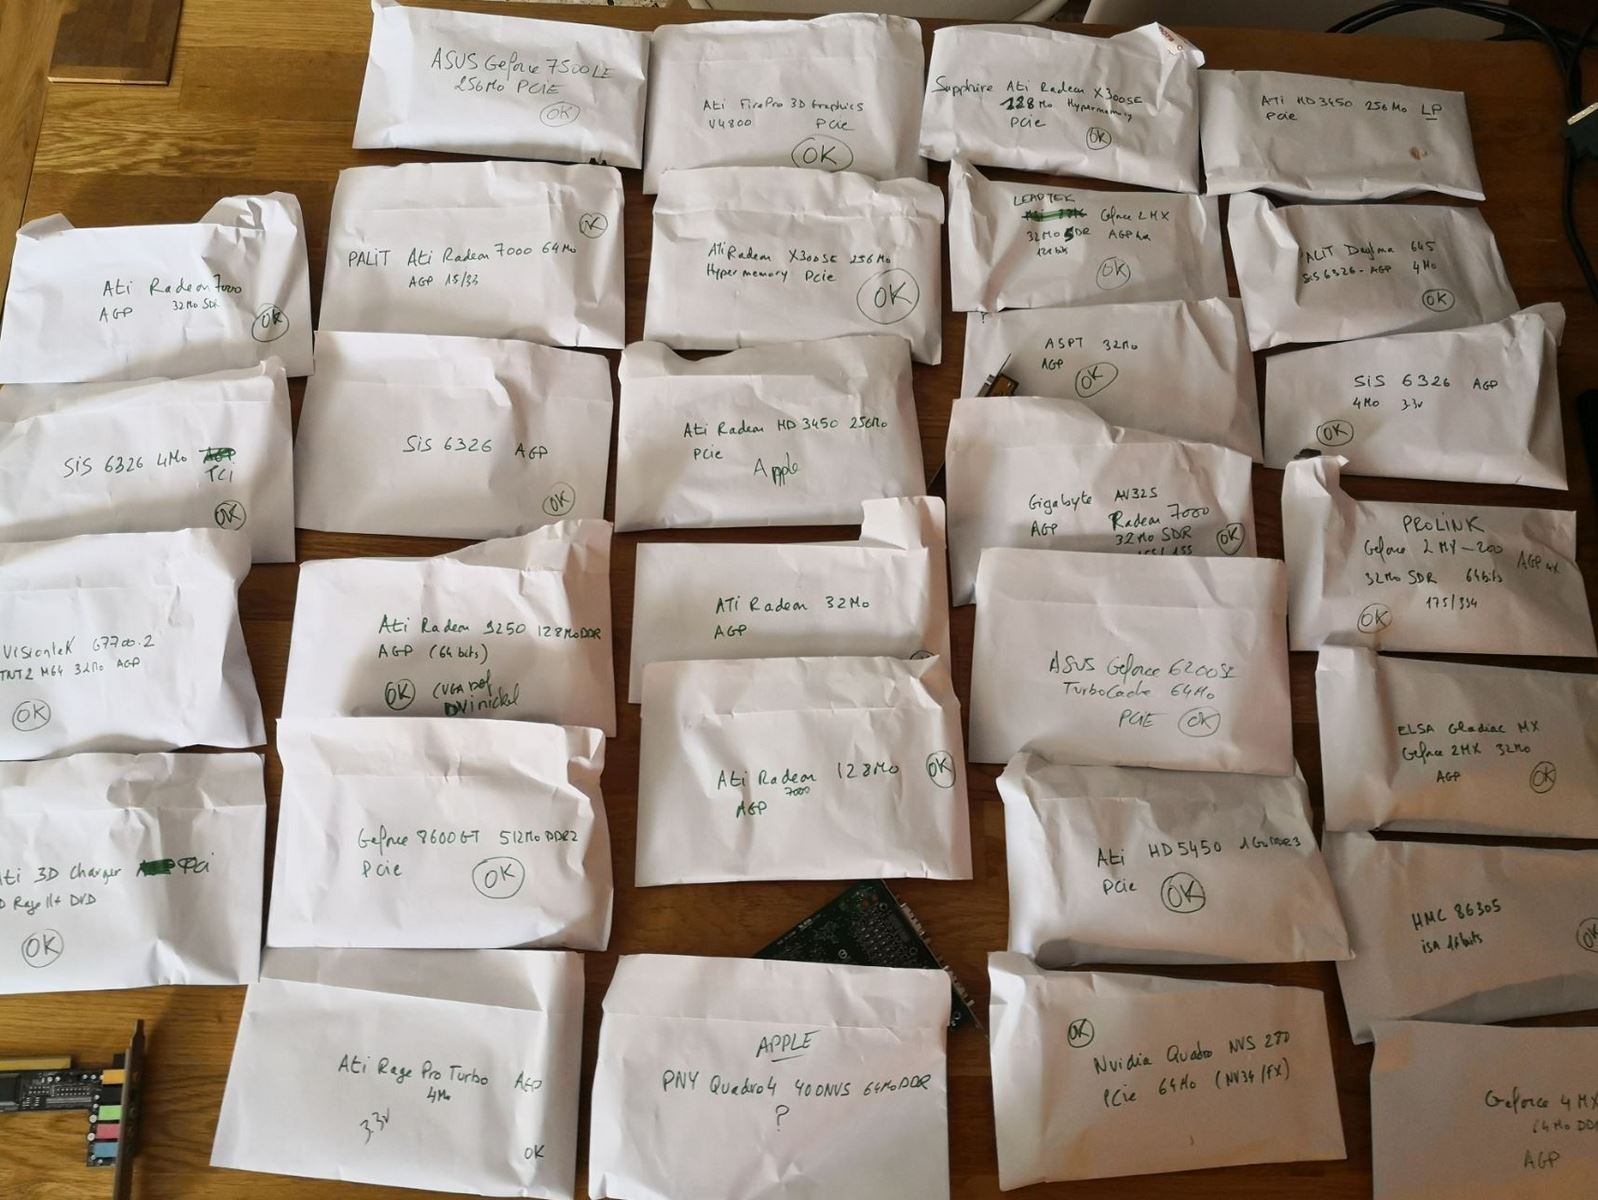 ASUS Geforce 7500LE
256Mo PCIE
OK
ATi FirePro 3D Graphics
V4800 PCie
OK
Sapphire Ati Radeon X300SE
128Mo Hypermemory
PCie
OK
ATi HD3450 256Mo LP
PCie
Ati Radeon 7000
AGP 32Mo SDR
OK
OK
PALIT Ati Radeon 7000 64Mo
AGP 15/33
Ati Radeon X300SE 256Mo
Hypermemory PCie
OK
LEADTEK
Geforce 2MX
32Mo SDR AGP 4x
128bits
OK
Daytona 64S
SiS 6326 - AGP 4Mo
OK
ASPT 32Mo
AGP
OK
SiS 6326 AGP
4Mo 3.3v
OK
SiS 6326 4Mo AGP
PCi
OK
SiS 6326 AGP
OK
Ati Radeon HD 3450 256Mo
PCie
Apple
Gigabyte AV32S
AGP Radeon 7000
32Mo SDR
OK
PROLINK
Geforce 2 MX-200 AGP 4x
32Mo SDR 64bits
175/334
OK
VisionteK G7700.2
TNT2 M64 32Mo AGP
OK
Ati Radeon 9250 128MoDDR
AGP (64 bits)
OK (VGA
DVi nickel
ATi Radeon 32Mo
AGP
ASUS Geforce 6200SE
TurboCache 64Mo
PCiE OK
ELSA Gladiac MX
Geforce 2MX 32Mo
AGP OK
Ati 3D Charger AGP PCi
3D Rage II+ DVD
OK
Geforce 8600GT 512Mo DDR2
PCie OK
Ati Radeon 128Mo OK
7000
AGP
Ati HD5450 1Go DDR3
PCie OK
HMC 86305
iSA 16bits
OK
Ati Rage Pro Turbo AGP
4Mo
3.3v
OK
APPLE
PNY Quadro4 400NVS 64MoDDR
?
OK
Nvidia Quadro NVS 280
PCie 64Mo (NV34/FX)
Geforce 4 MX
64Mo DDR
AGP